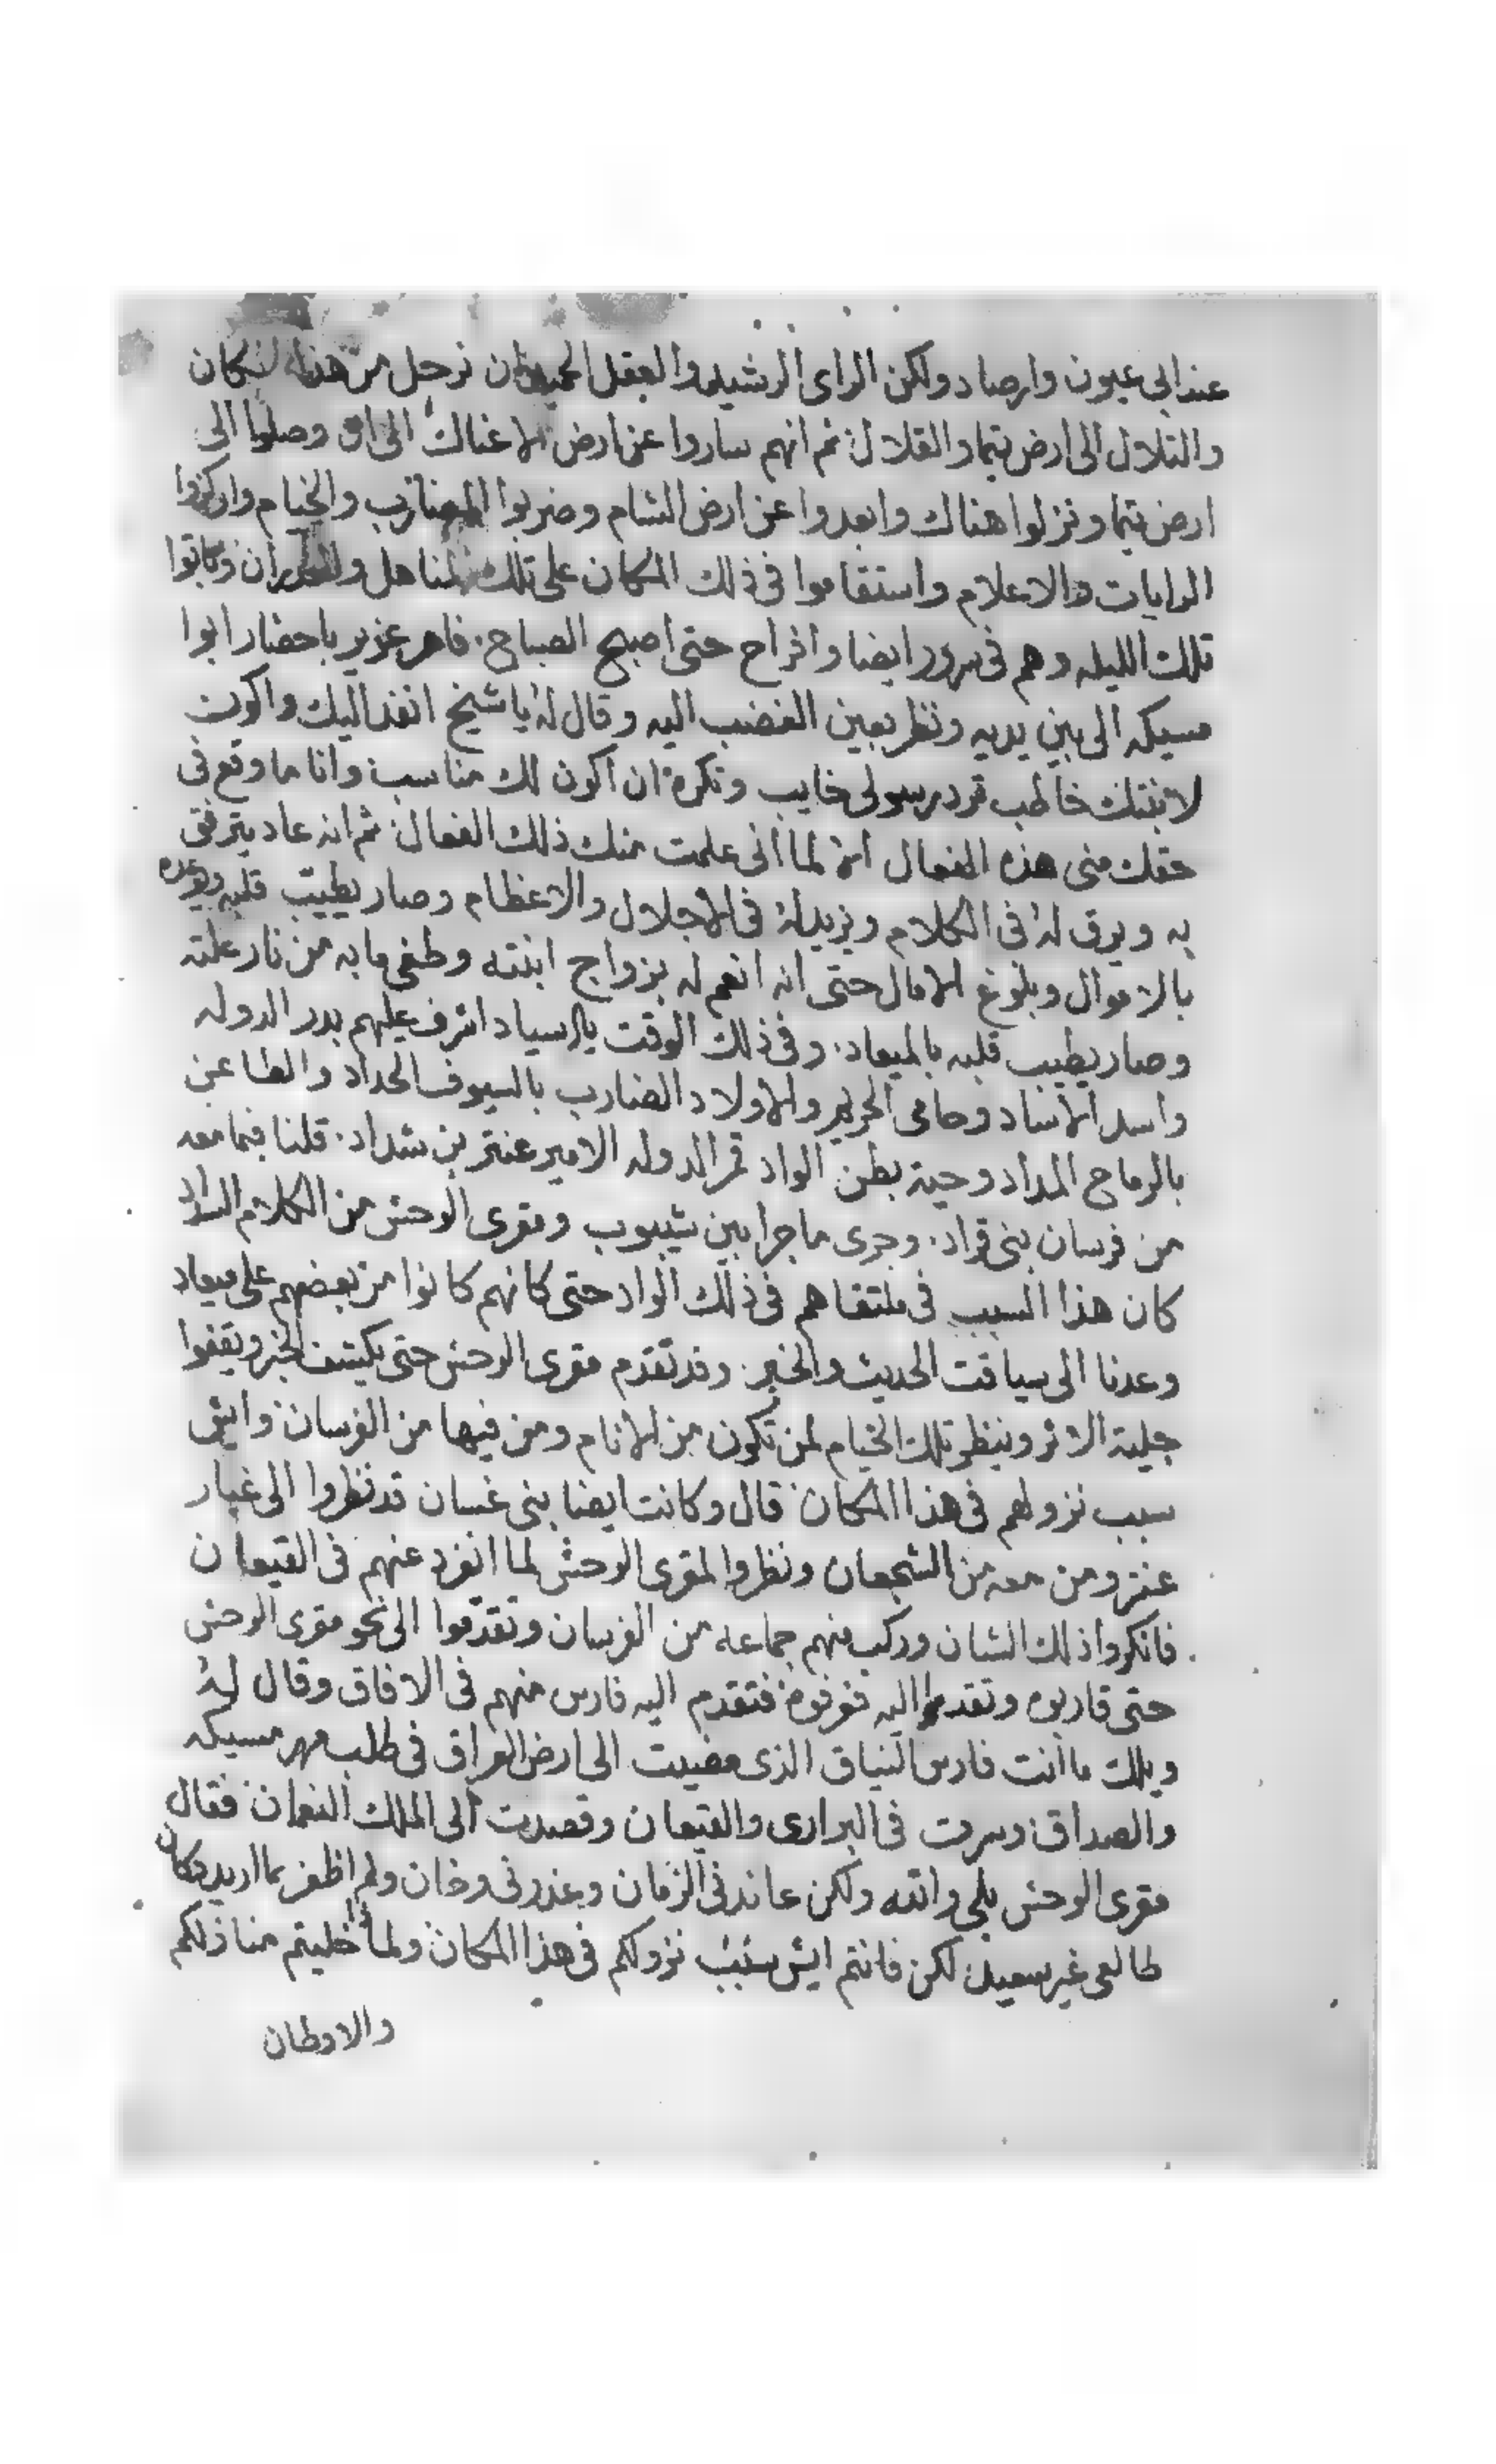 عندابى عيون وارصاد ولكن الراى الرشيد والعقل الحميد ان نرحل من هذا المكان
والتلال الى ارض تيما والقلال ثم انهم ساروا عن ارض الاعناك الى ان وصلوا الى
ارض تيما ونزلوا هناك وابعدوا عن ارض الشام وضربوا المضارب والخيام واركزوا
الرايات والاعلام واستقاموا فى ذلك المكان على تلك المناهل والغدران وباتوا
تلك الليله وهم فى سرور ايضا وافراح حتى اصبح الصباح. فامر عزير باحضار ابوا
مسيكه الى بين يديه ونظر بعين الغضب اليه وقال له يا شيخ انفذ اليك واكون
لابنتك خاطب فترد رسولى خايب وتكره ان اكون لك مناسب وانا ما وقع فى
حقك منى هذه الفعال الا لما انى علمت منك ذلك الفعال ثم انه عاد يترفق
به ويرق له فى الكلام ويزيد له فى الاجلال والاعظام وصار يطيّب قلبه ويوعده
بالاموال وبلوغ الامال حتى انه انعم له بزواج ابنته وطفى ما به من نار علته
وصار يطيب قلبه بالميعاد. وفى ذلك الوقت يا اسياد اشرف عليهم بدر الدوله
واسد الاساد وحامى الحريم والاولاد الضارب بالسيوف الحداد والطاعن
بالرماح المداد وحية بطن الواد قمر الدوله الامير عنتر بن شداد. قلنا فيما معه
من فرسان بنى قراد. وجرى ما جرا بين شيبوب ومقرى الوحش من الكلام
كان هذا السبب فى ملتقاهم فى ذلك الواد حتى كانهم كانوا من بعضهم على ميعاد
وعدنا الى سياقت الحديث والخبر. وقد تقدم مقرى الوحش حتى يكشف الخبر ويقفوا
جلية الاثر وينظر تلك الخيام لمن تكون من الانام ومن فيها من الفرسان وايش
سبب نزولهم فى هذا المكان قال وكانت ايضا بنى غسان قد نظروا الى غبار
عنتر ومن معه من الشجعان ونظروا لمقرى الوحش لما انفرد عنهم فى القيعان
فانكروا ذلك الشان وركب منهم جماعه من الفرسان وتقدّموا الى نحو مقرى الوحش
حتى قاربوه وتقدموا اليه فعرفوه فتقدم اليه فارس منهم فى الافاق وقال له
ويلك ما انت فارس النياق الذى مضيت الى ارض العراق فى طلب مهر مسيكه
والصداق وسرت فى البرارى والقيعان وقصدت الى الملك النعمان فقال
مقرى الوحش بلى والله ولكن عاندنى الزمان وغدرنى وخان ولم اظفر بما اريد وكان
طالعى غير سعيد لكن فانتم ايش سبب نزولكم فى هذا المكان ولما اخليتم منازلكم
والاوطان